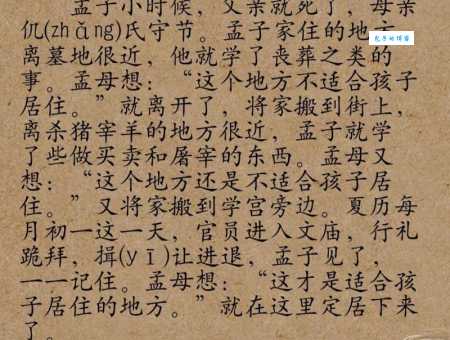 孟子小时候，父亲就死了，母亲
仉(zhǎng)氏守节。孟子家住的地方
离墓地很近，他就学了丧葬之类的
事。孟母想：“这个地方不适合孩子
居住。”就离开了，将家搬到街上，
离杀猪宰羊的地方很近，孟子就学
了些做买卖和屠宰的东西。孟母又
想：“这个地方还是不适合孩子居
住。”又将家搬到学宫旁边。夏历每
月初一这一天，官员进入文庙，行礼
跪拜，揖(yī)让进退，孟子见了，
一一记住。孟母想：“这才是适合孩
子居住的地方。”就在这里定居下来
了。